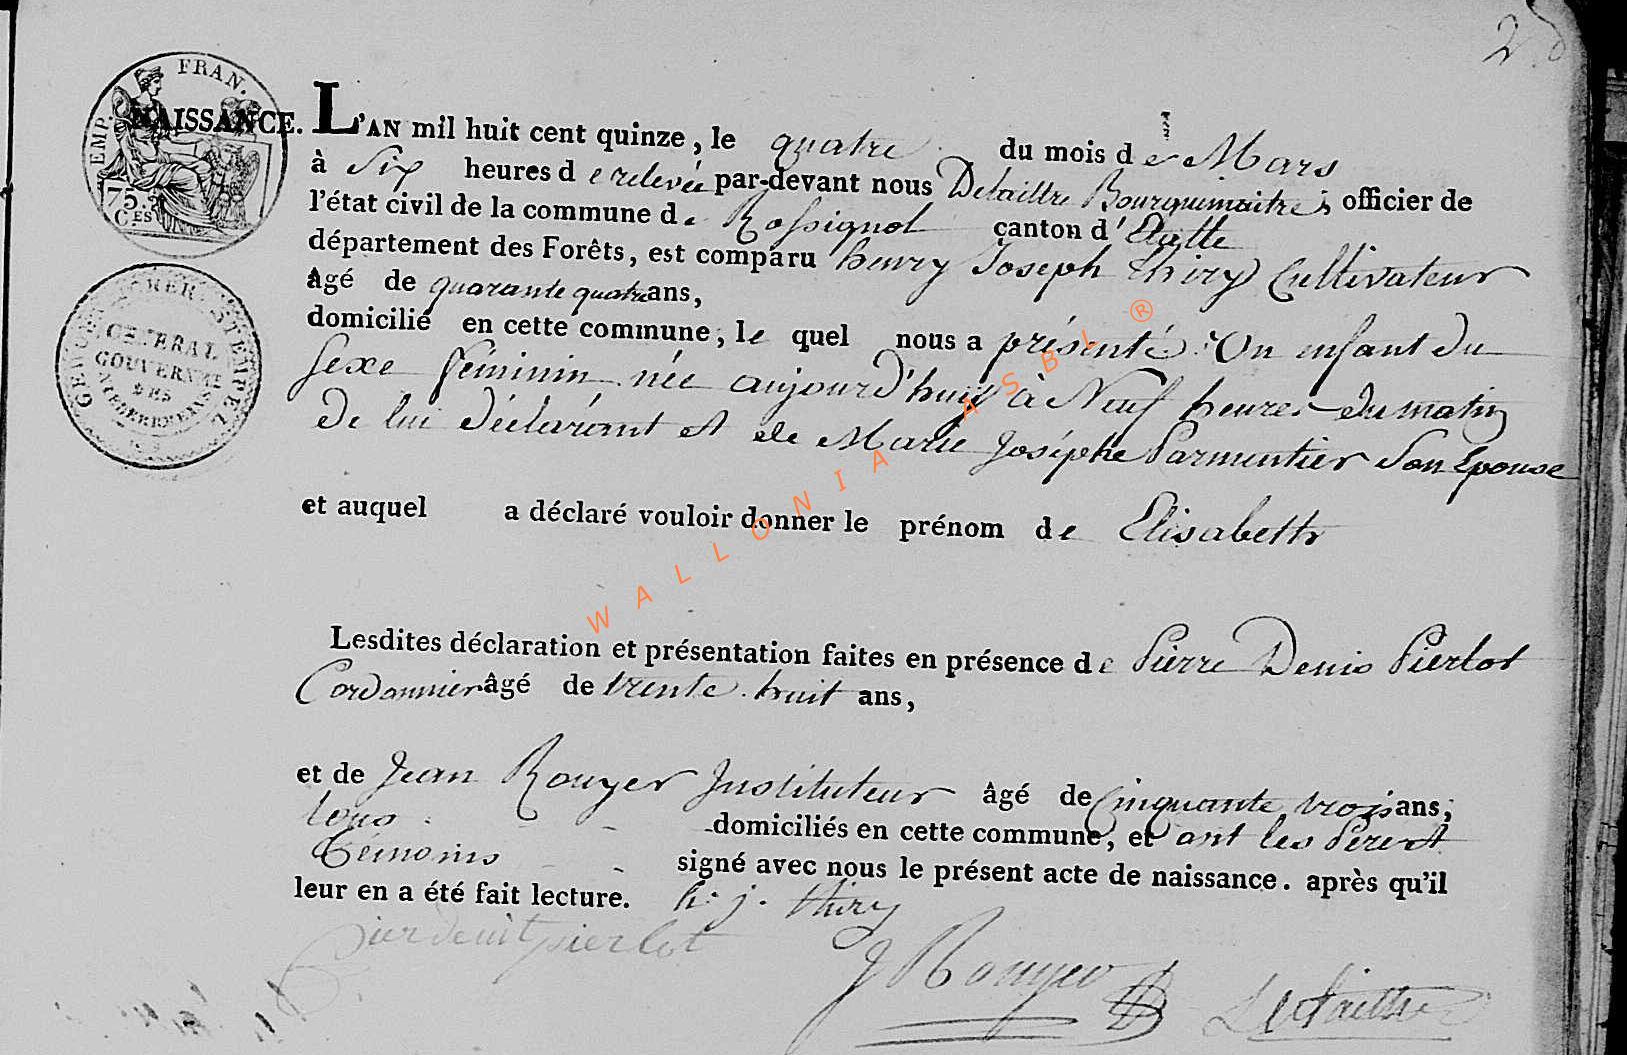 28
EMP. FRAN.
75. C.ES
GENERAL
GOUVERNEMT
DES
STEMPEL
NAISSANCE. L'AN mil huit cent quinze, le quatre du mois de Mars
à Six heures de relevée par-devant nous Delaittre Bourguemaitre, officier de
l'état civil de la commune de Rossignol canton d'Etalle
département des Forêts, est comparu henry Joseph thiry Cultivateur
âgé de quarante quatre ans,
domicilié en cette commune, le quel nous a présenté Un enfant du
sexe féminin née aujourd'huy à Neuf heures du matin
de lui déclarant et de Marie Joséphe Parmentier Son Epouse
et auquel a déclaré vouloir donner le prénom de Elisabeth
Lesdites déclaration et présentation faites en présence de Pierre Denis Pierlot
Cordonnier âgé de trente huit ans,
et de Jean Rouyer Instituteur âgé de Cinquante trois ans;
tous domiciliés en cette commune, et ont les Pere et
Temoins signé avec nous le présent acte de naissance. après qu'il
leur en a été fait lecture. h. j. thiry
pierlot
J Rouyer Delaittre
WALLONIA ASBL ®